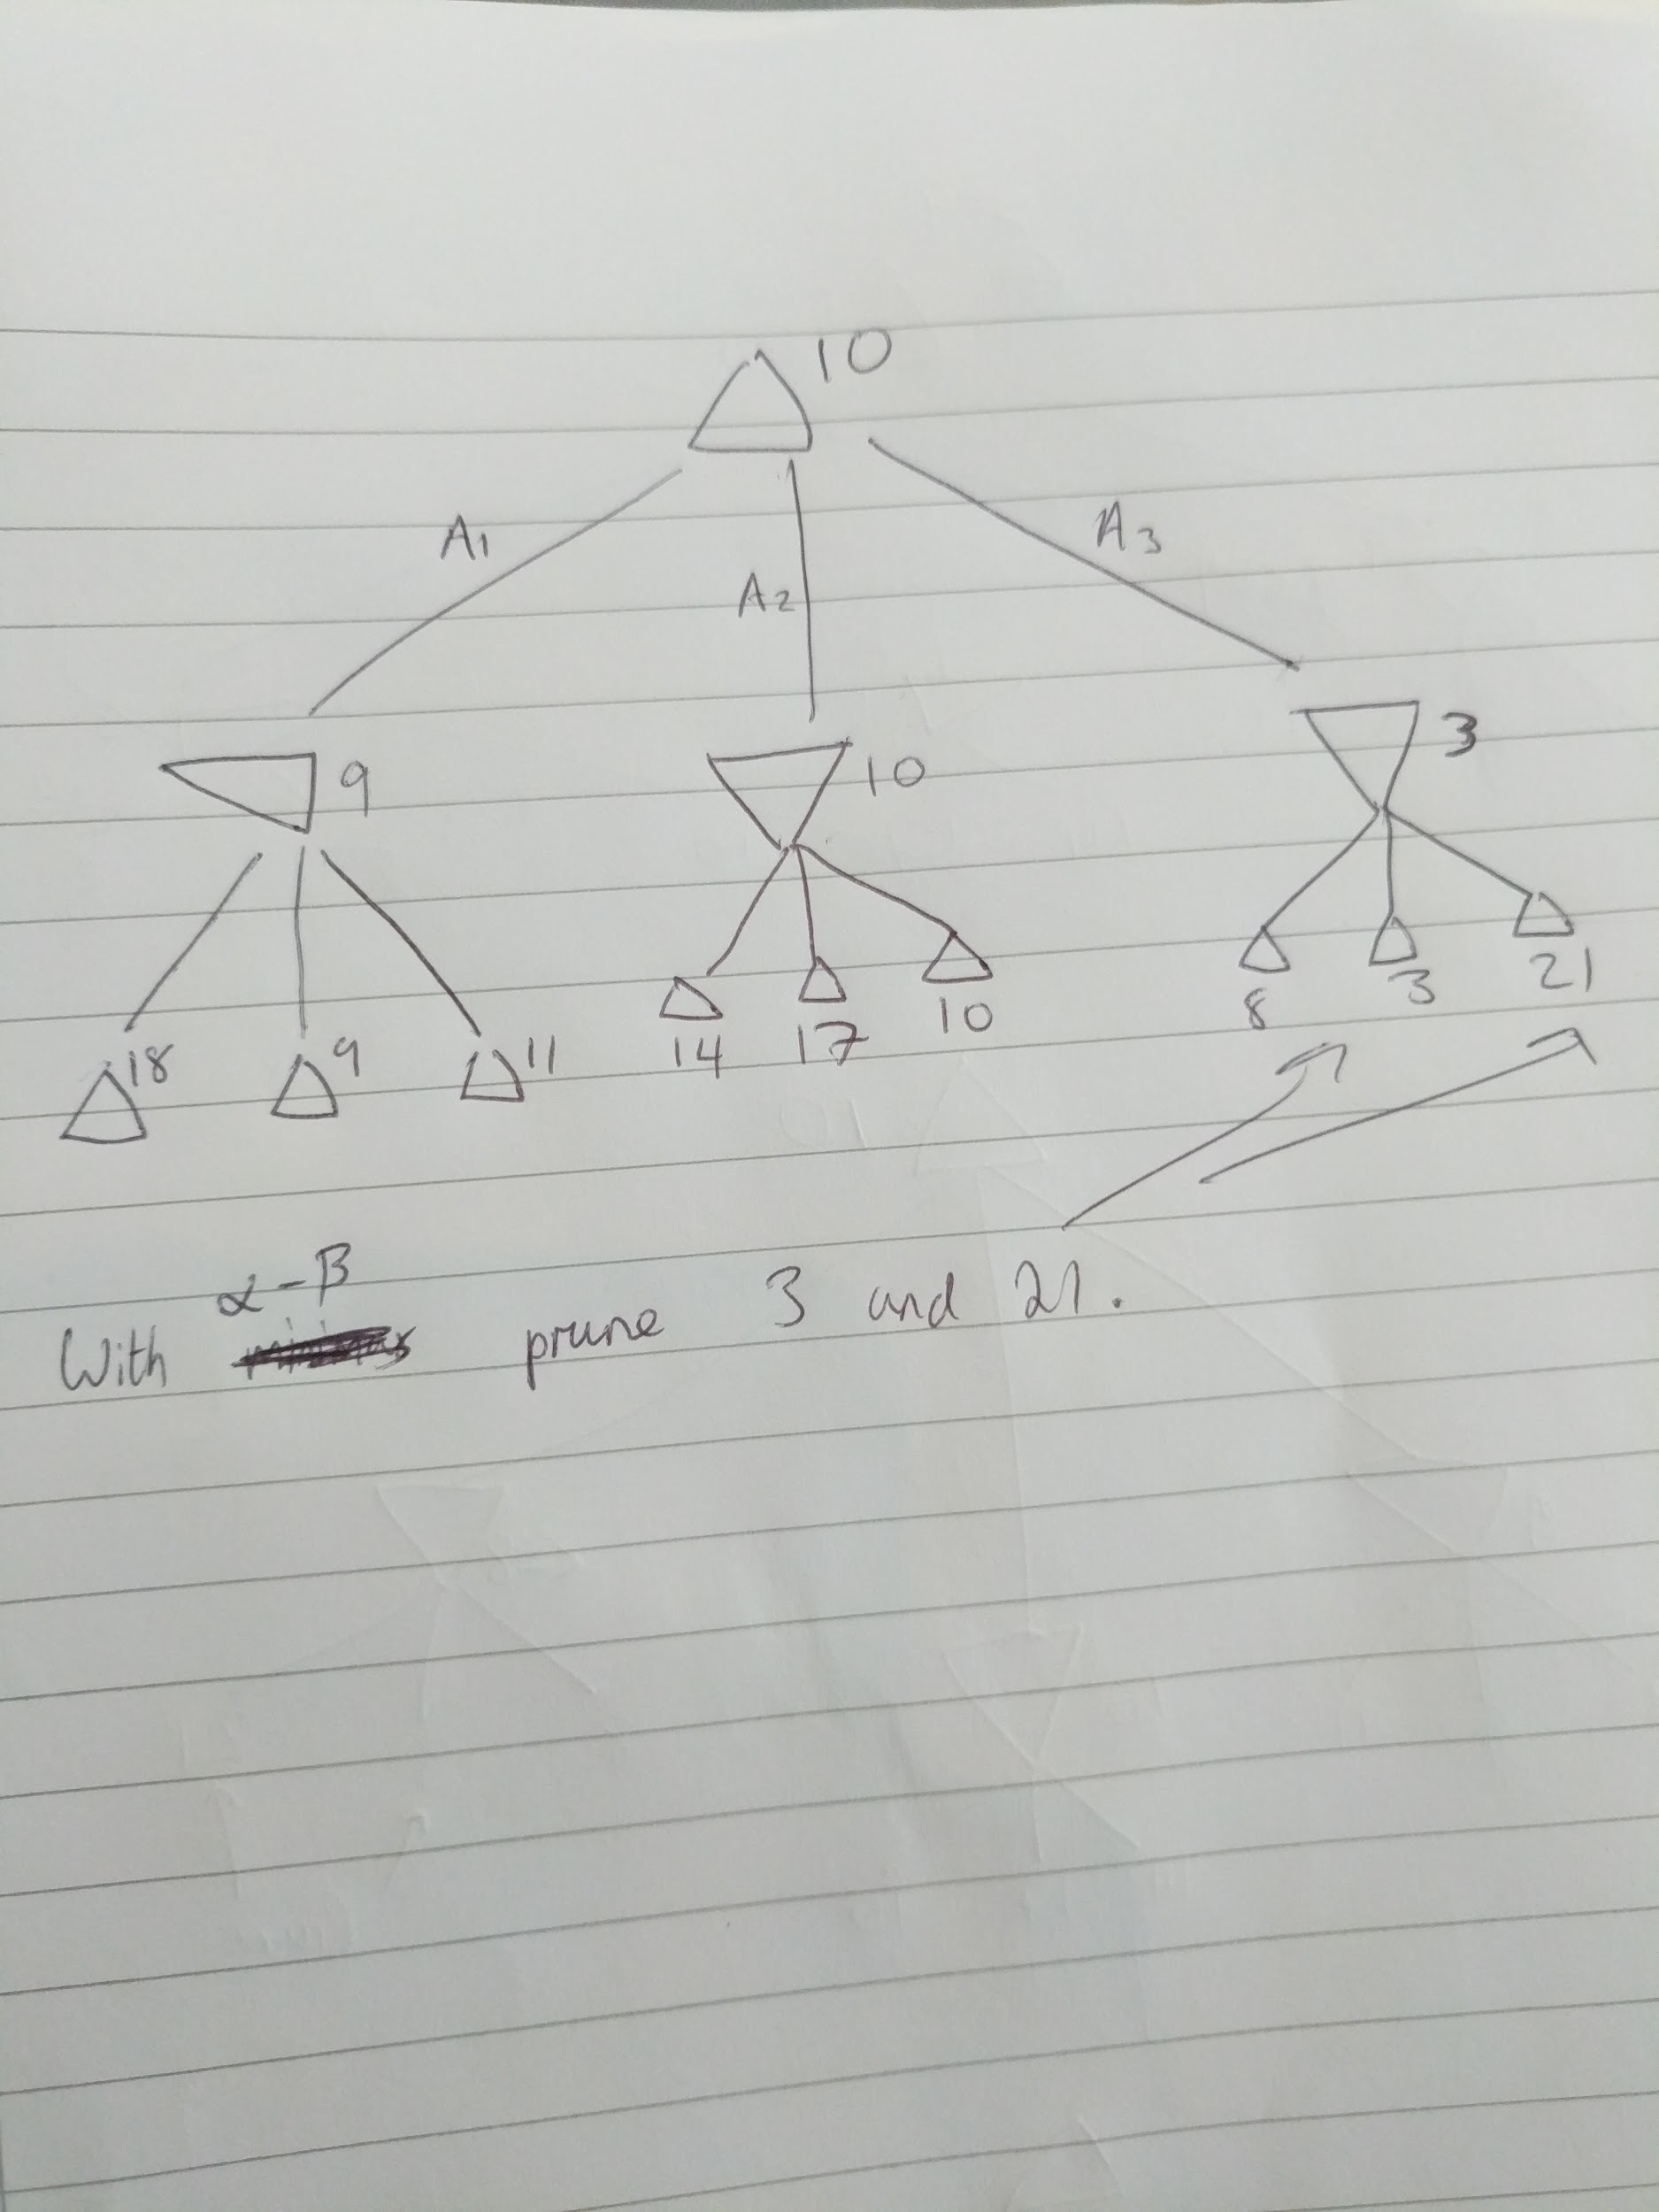 10
A1
A2
A3
9
10
3
18 9 11
14 17 10
8 3 21
α-β
With prune 3 and 21.